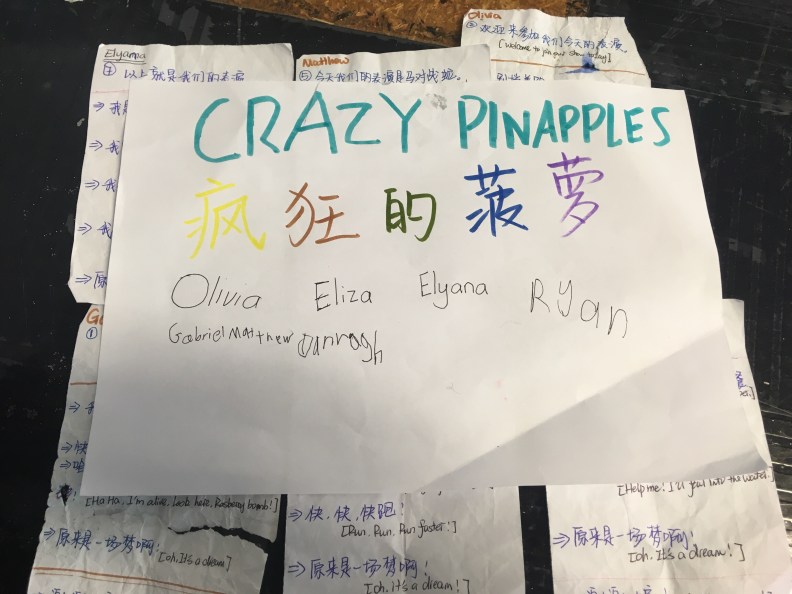 Elyanna
⑦ 以上就是我们的表演
⇒ 我是
⇒ 我
⇒ 我
⇒ 我
⇒ 原
Matthew
⑤ 今天我们的表演是
Olivia
② 欢迎来参加我们今天的表演。
[Welcome to join our show today]
CRAZY PINAPPLES
疯狂的菠萝
Olivia Eliza Elyana Ryan
Gabriel Matthew Darragh
①
⇒ 快
[HaHa. I'm alive. Look here. Rosbury bomb!]
⇒ 原来是一场梦啊!
[oh. It's a dream]
⇒ 快,快,快跑!
[Run. Run. Run faster!]
⇒ 原来是一场梦啊!
[oh. It's a dream!]
[Help me! I'll into the water.]
⇒ 原来是一场梦啊!
[oh. It's a dream!]